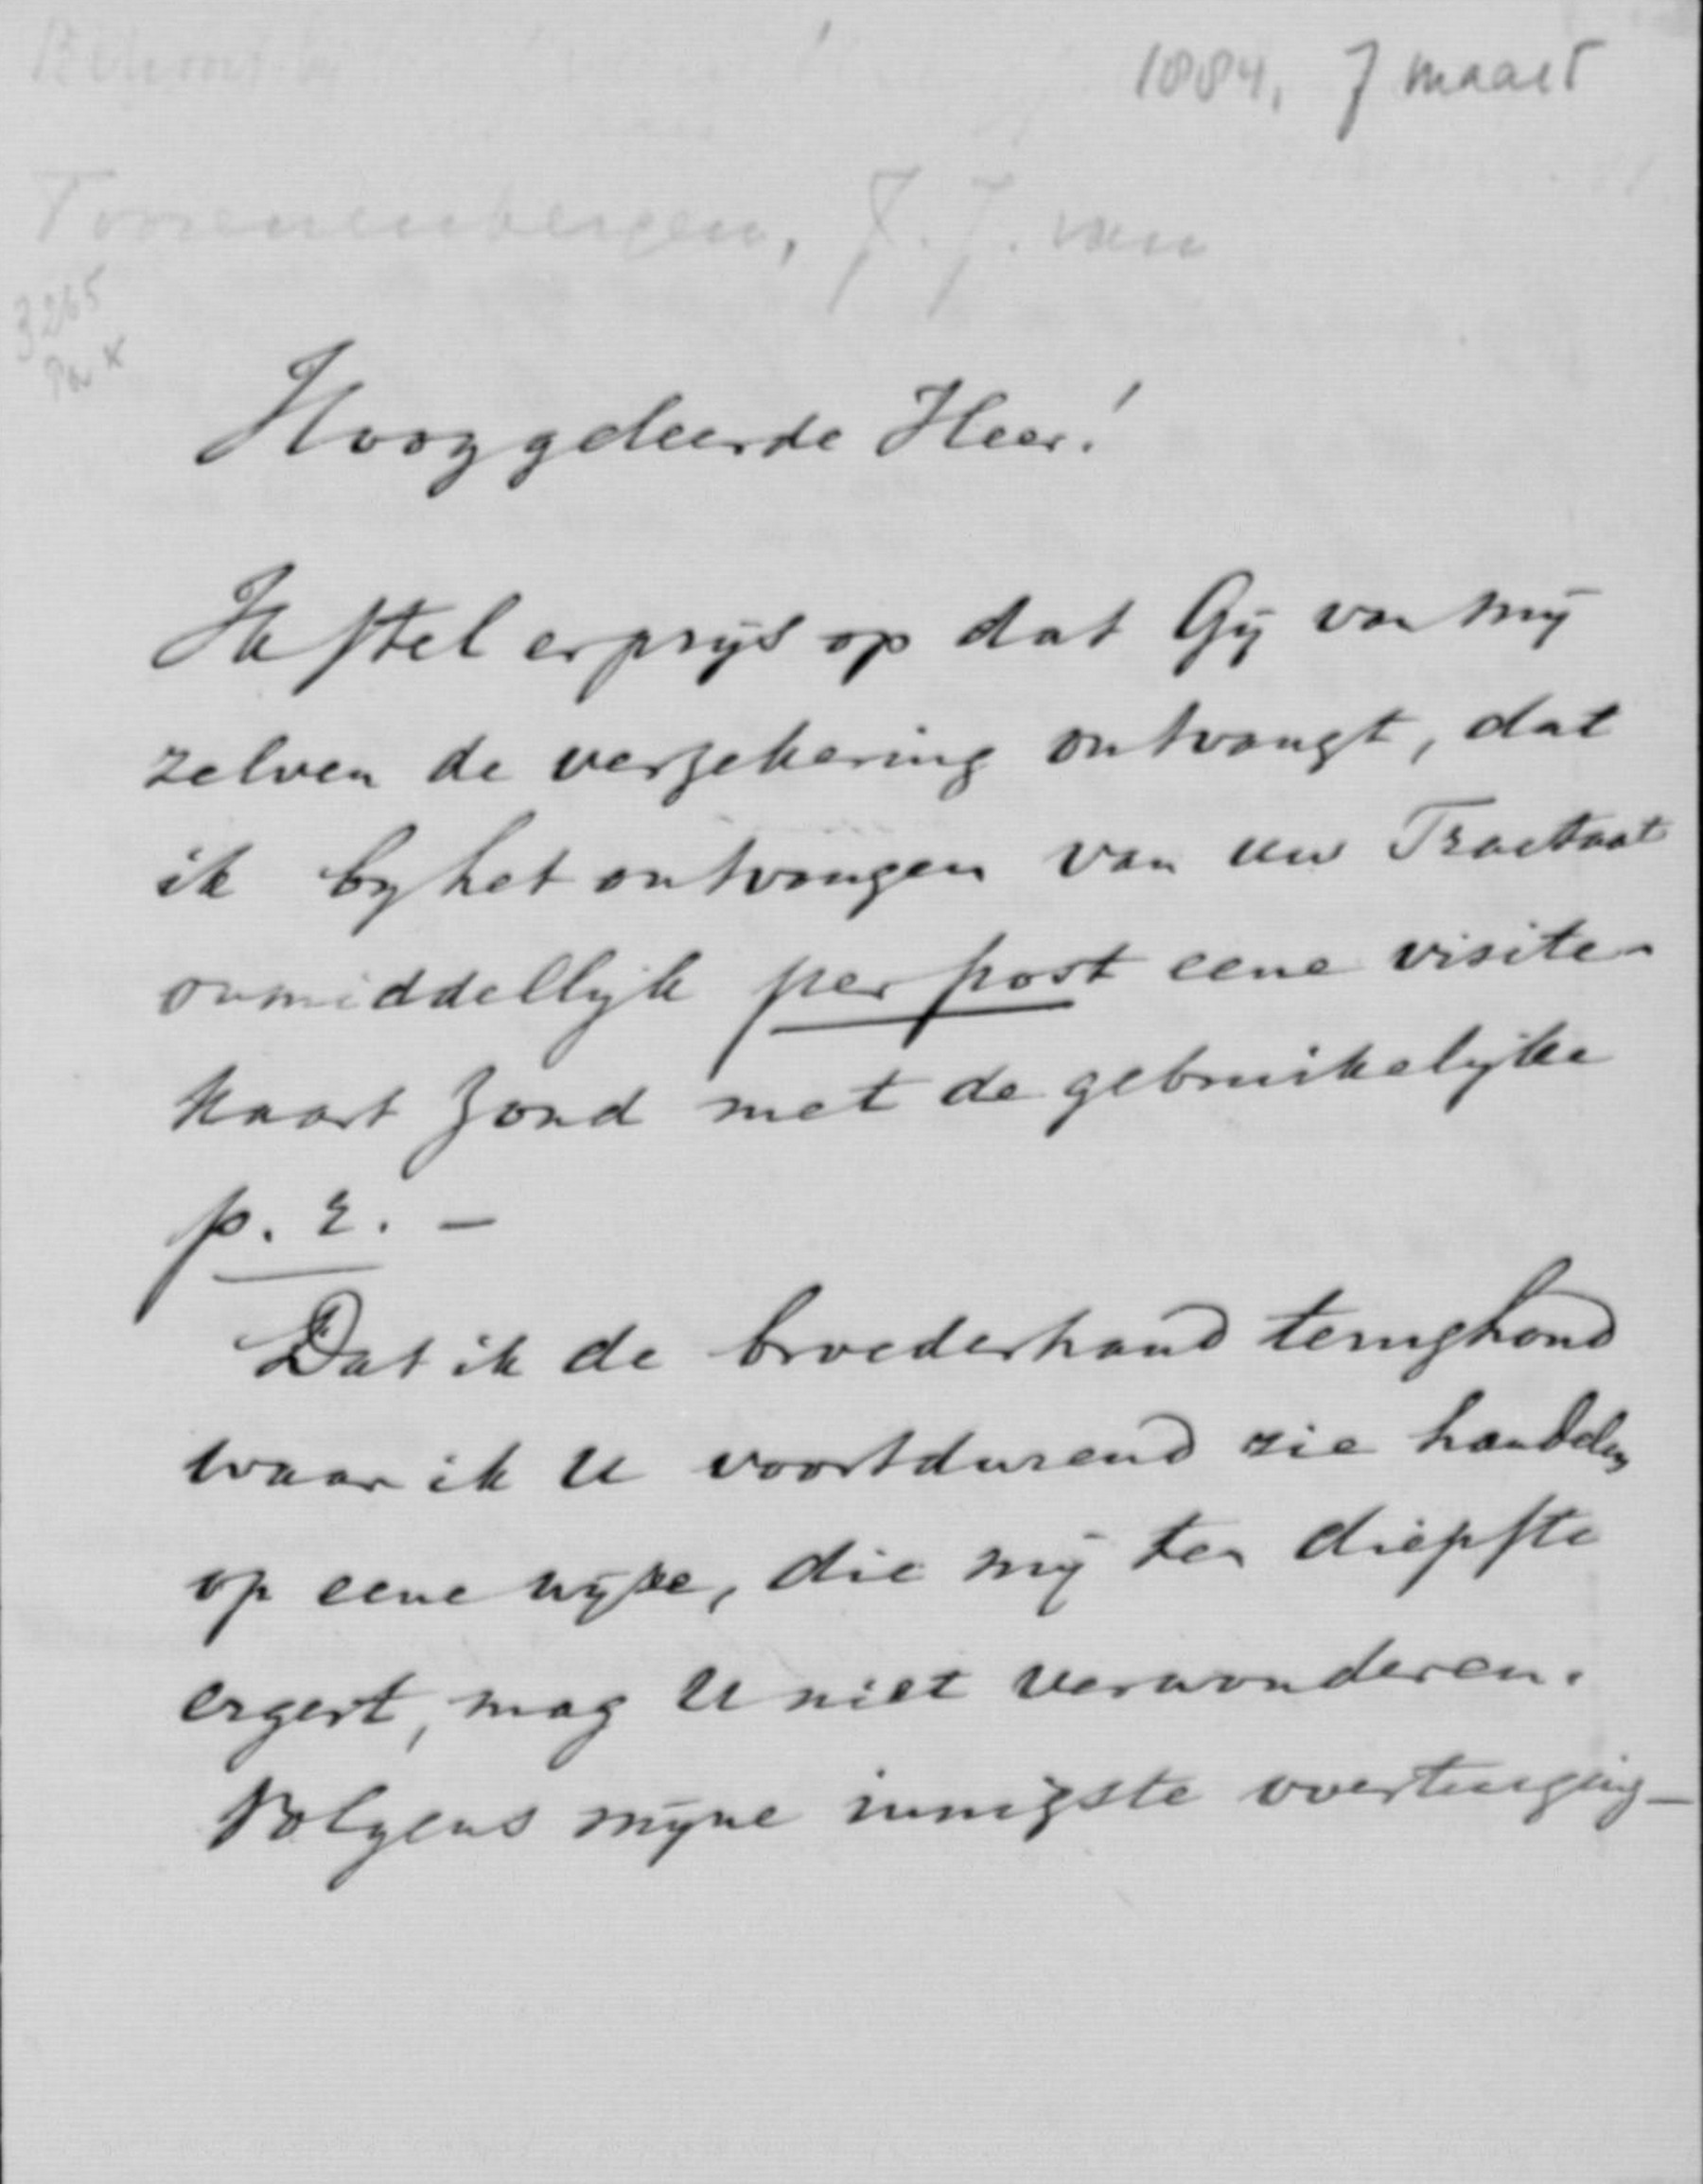 1884, 7 maart
Toorenenbergen, J. J. van
3265
Hooggeleerde Heer!
Ik stel er prijs op dat Gij van mij
zelven de verzekering ontvangt, dat
ik bij het ontvangen van uw Tractaat
onmiddellijk per post eene visite-
kaart zond met de gebruikelijke
p. r. —
Dat ik de broederhand terughoud
waar ik U voortdurend zie handelen
op eene wijze, die mij ten diepste
ergert, mag U niet verwonderen.
Volgens mijne innigste overtuiging—